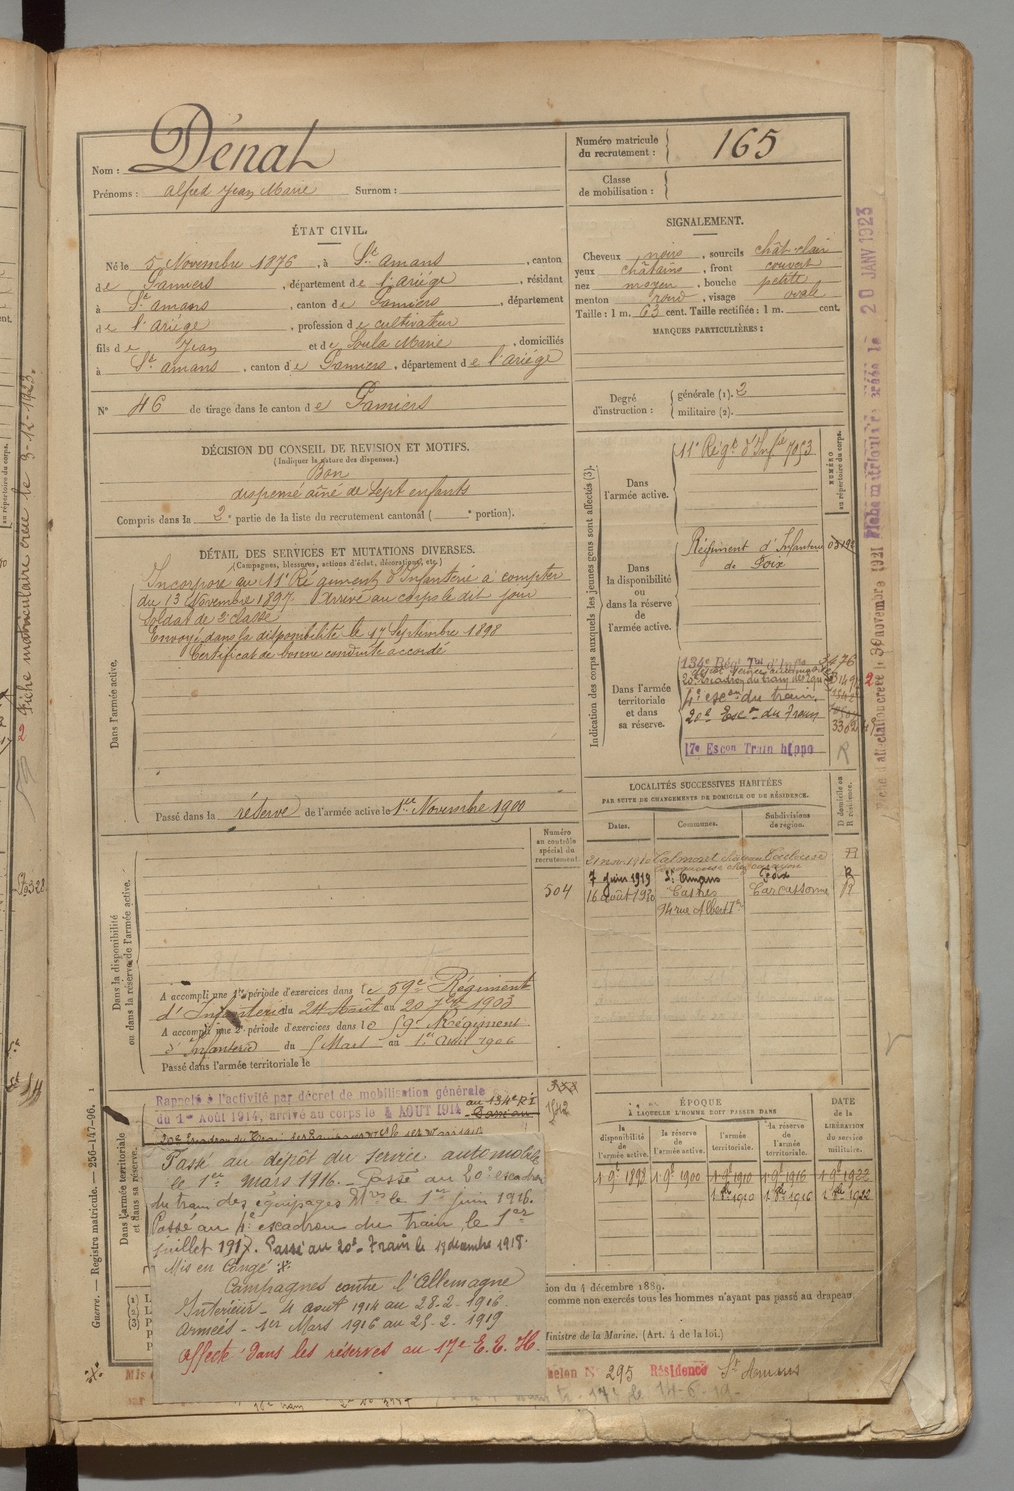 Nom : Dénat
Prénoms : Alfred Jean Marie Surnom :
Numéro matricule du recrutement : 165
Classe de mobilisation :
ÉTAT CIVIL.
Né le 5 Novembre 1876, à St. Amans, canton
de Pamiers, département de l'Ariége, résidant
à St. Amans, canton de Pamiers, département
de l'Ariége, profession de cultivateur
fils de Jean et de Soula Marie, domiciliés
à St. Amans, canton de Pamiers, département de l'Ariége
N° 46 de tirage dans le canton de Pamiers
SIGNALEMENT.
Cheveux noirs, sourcils chât-clair
yeux châtains, front couvert
nez moyen, bouche petite
menton rond, visage ovale
Taille : 1 m. 63 cent. Taille rectifiée : 1 m. cent.
MARQUES PARTICULIÈRES :
Degré d'instruction : générale (1). 2
militaire (2).
DÉCISION DU CONSEIL DE REVISION ET MOTIFS.
(Indiquer la nature des dispenses.)
Bon
dispensé aîné de sept enfants
Compris dans la 2e partie de la liste du recrutement cantonal ( e portion).
DÉTAIL DES SERVICES ET MUTATIONS DIVERSES.
(Campagnes, blessures, actions d'éclat, décorations, etc.)
Dans l'armée active.
Incorporé au 11e Régiment d'Infanterie à compter
du 13 Novembre 1897. Arrivé au corps le dit jour
Soldat de 2e classe
Envoyé dans la disponibilité le 17 Septembre 1898
Certificat de bonne conduite accordé
Passé dans la réserve de l'armée active le 1er Novembre 1900
Indication des corps auxquels les jeunes gens sont affectés (3).
NUMÉRO au répertoire du corps.
Dans l'armée active.
11e Régt d'Infie 7053
Dans la disponibilité ou dans la réserve de l'armée active.
Régiment d'Infanterie
de Foix
Dans l'armée territoriale et dans sa réserve.
134e Régt Tal d'Infie 3476
4e escon du train
20e Escon du Train
3302
17e Escon Train hippo R
LOCALITÉS SUCCESSIVES HABITÉES
PAR SUITE DE CHANGEMENTS DE DOMICILE OU DE RÉSIDENCE.
Dates. Communes. Subdivisions de région. D domicile ou R résidence.
7 juin 1919 St Amans Foix R
16 août 1920 Castres Carcassonne R
14 rue Albert Ier
Dans la disponibilité ou dans la réserve de l'armée active.
Numéro au contrôle spécial du recrutement.
504
A accompli une 1re période d'exercices dans le 59e Régiment
d'Infanterie du 24 Août au 20 7bre 1903
A accompli une 2e période d'exercices dans le 59e Régiment
d'Infanterie du 5 Mars au 1er Avril 1906
Passé dans l'armée territoriale le
Dans l'armée territoriale et dans sa réserve.
Rappelé à l'activité par décret de mobilisation générale
du 1er Août 1914, arrivé au corps le 4 AOUT 1914 au 134e R.I
Passé au
Passé au dépôt du service automobile
le 1er mars 1916. Passé au 20e escadron
du train des équipages Mres le 1er juin 1916.
Passé au 4e escadron du train le 1er
juillet 1917. Passé au 20e Train le 19 décembre 1918.
Mis en Congé
Campagnes contre l'Allemagne
Intérieur - 4 août 1914 au 28-2-1916.
Armées - 1er Mars 1916 au 25-2-1919
Affecté dans les réserves au 17e E.T.H.
ÉPOQUE
À LAQUELLE L'HOMME DOIT PASSER DANS
la disponibilité de l'armée active. la réserve de l'armée active. l'armée territoriale. la réserve de l'armée territoriale. DATE de la LIBÉRATION du service militaire.
1 9e 1898 1 9e 1900 1 9e 1910 1 9e 1916 1 9e 1922
ion du 4 décembre 1889.
comme non exercés tous les hommes n'ayant pas passé au drapeau
Ministre de la Marine. (Art. 4 de la loi.)
helon N° 295 Résidence St Amans
Guerre. — Registre matricule. — 256-147-96.
Fiche matriculaire créée le 3-12-1923.
Fiche matriculaire créée le 20 JANV 1923